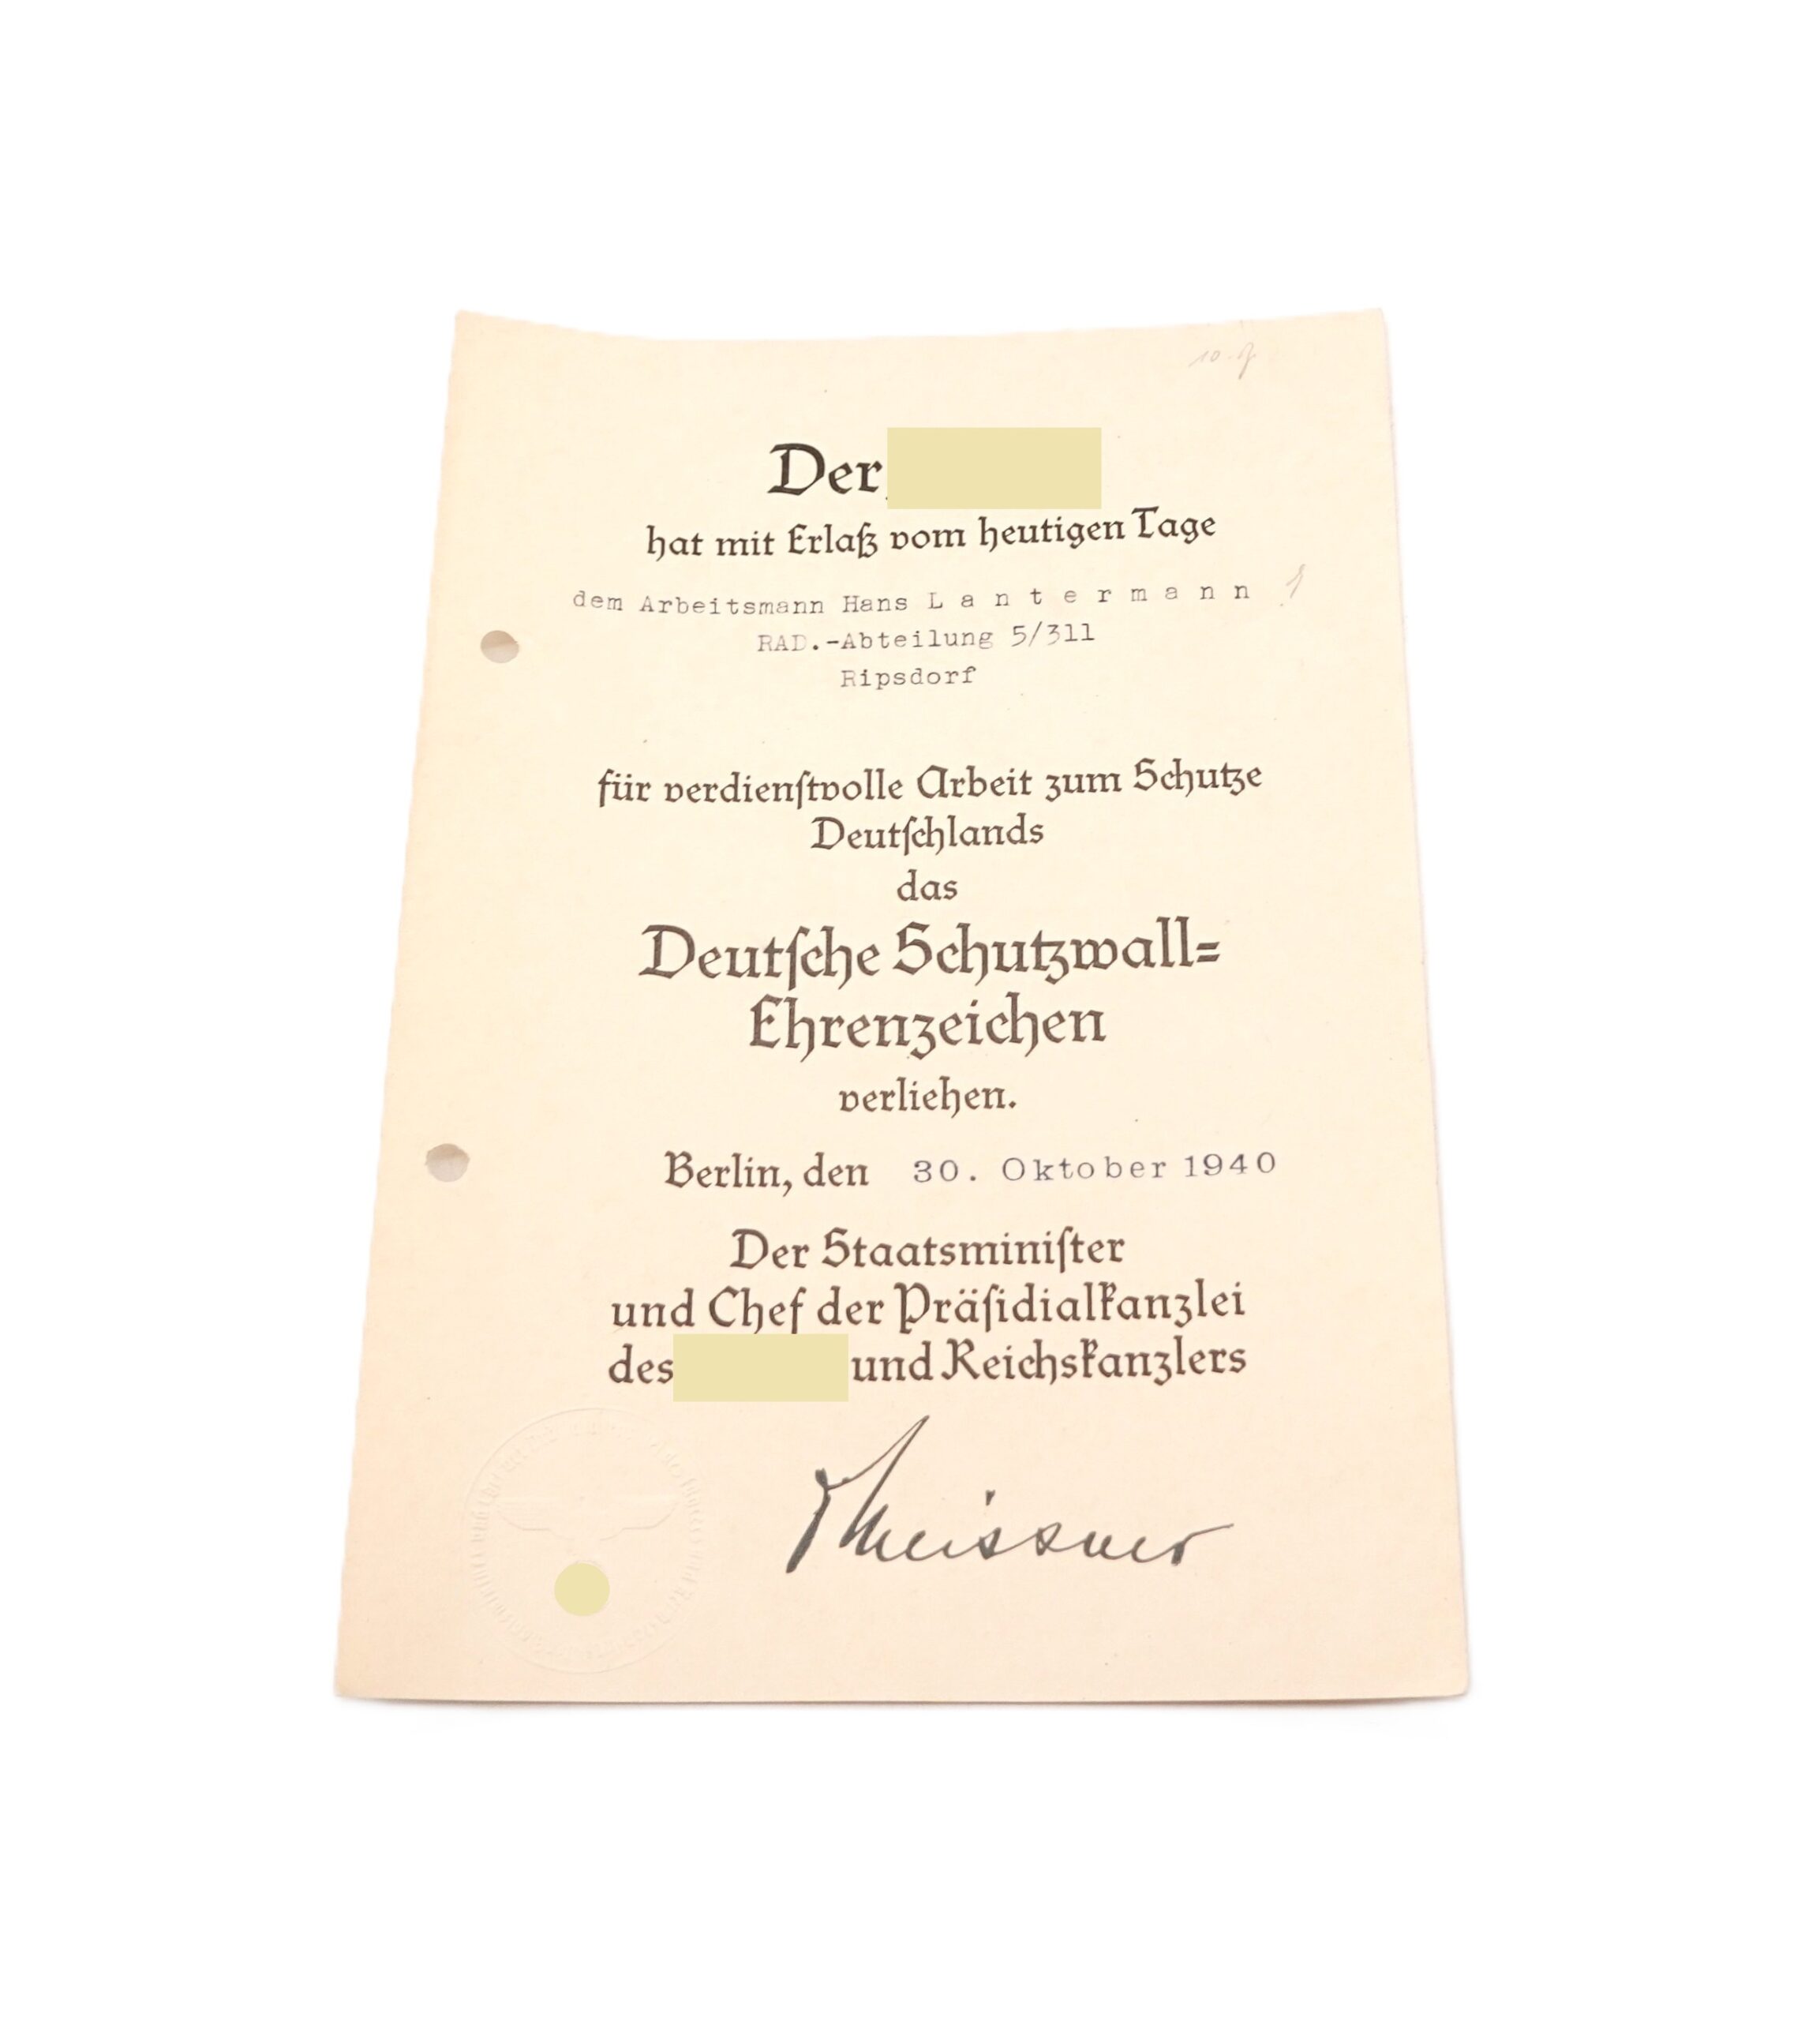 Der
hat mit Erlaß vom heutigen Tage
dem Arbeitsmann Hans L a n t e r m a n n
RAD.-Abteilung 5/311
Ripsdorf
für verdienſtvolle Arbeit zum Schutze
Deutſchlands
das
Deutſche Schutzwall=
Ehrenzeichen
verliehen.
Berlin, den 30. Oktober 1940
Der Staatsminiſter
und Chef der Präſidialkanzlei
des und Reichskanzlers
Meissner